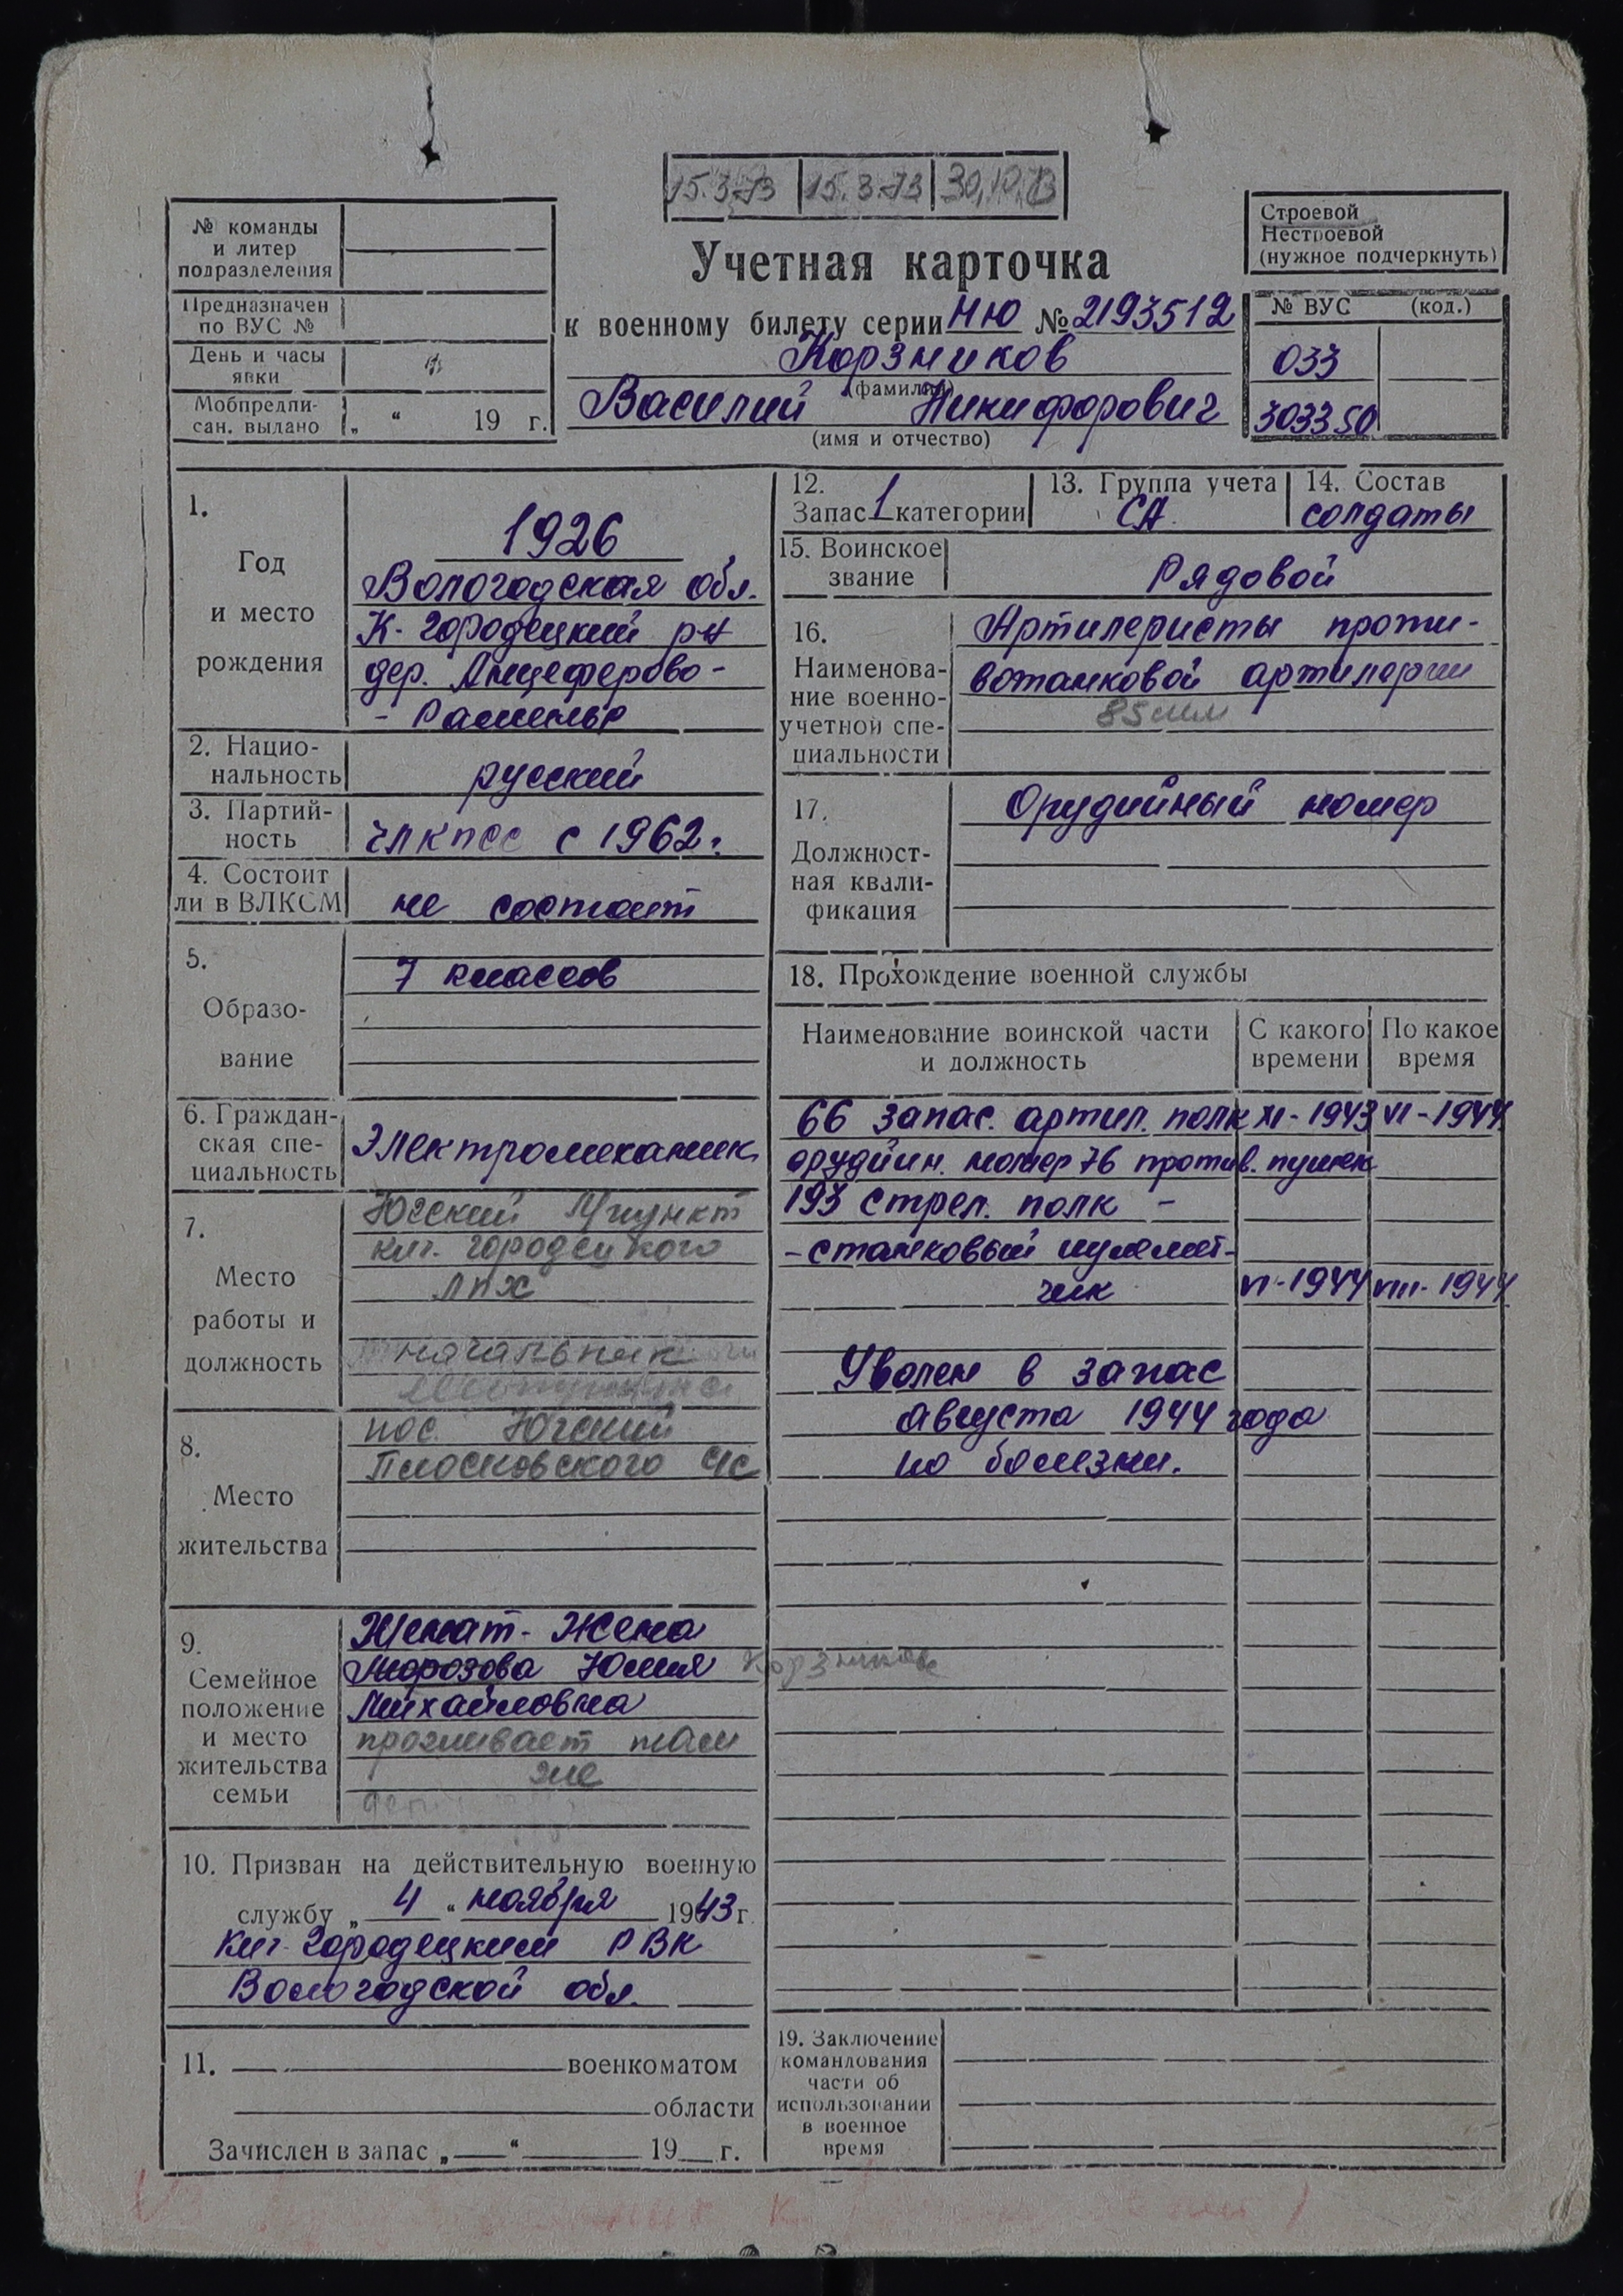 15.3.73 15.3.73 30.10.73
№ команды
и литер
подразделения
Предназначен
по ВУС №
День и часы
явки
Мобпредпи-
сан. выдано „ “ 19 г.
Учетная карточка
к военному билету серии НЮ № 2193512
Корзников
(фамилия)
Василий Никифорович
(имя и отчество)
Строевой
Нестроевой
(нужное подчеркнуть)
№ ВУС (код.)
033
303350
1.
Год
и место
рождения
1926
Вологодская обл.
К-Городецкий р-н
дер. Анцеферово-
- Раменье
2. Нацио-
нальность
русский
3. Партий-
ность
чл КПСС с 1962г.
4. Состоит
ли в ВЛКСМ
не состоит
5.
Образо-
вание
7 классов
6. Граждан-
ская спе-
циальность
Электромеханик
7.
Место
работы и
должность
Югский
кич. городецкого
ЛПХ
начальник
8.
Место
жительства
пос. Югский
Плосковского с/с
9.
Семейное
положение
и место
жительства
семьи
Женат - Жена
Морозова Юлия Корзникова
Михайловна
проживает там
же
10. Призван на действительную военную
службу „ 4 “ ноября 1943 г.
Кич-Городецким РВК
Вологодской обл.
11. военкоматом
области
Зачислен в запас „ “ 19 г.
12.
Запас 1 категории
13. Группа учета
СА
14. Состав
солдаты
15. Воинское
звание
Рядовой
16.
Наименова-
ние военно-
учетной спе-
циальности
Артилеристы проти-
вотанковой артилерии
85 мм
17.
Должност-
ная квали-
фикация
Орудийный номер
18. Прохождение военной службы
Наименование воинской части
и должность
С какого
времени
По какое
время
66 запас. артил. полк XI-1943 VI-1944
орудийн. номер 76 против. пушек
193 стрел. полк -
- станковый пулемет-
чик VI-1944 VIII-1944
Уволен в запас
августа 1944 года
по болезни.
19. Заключение
командования
части об
использовании
в военное
время